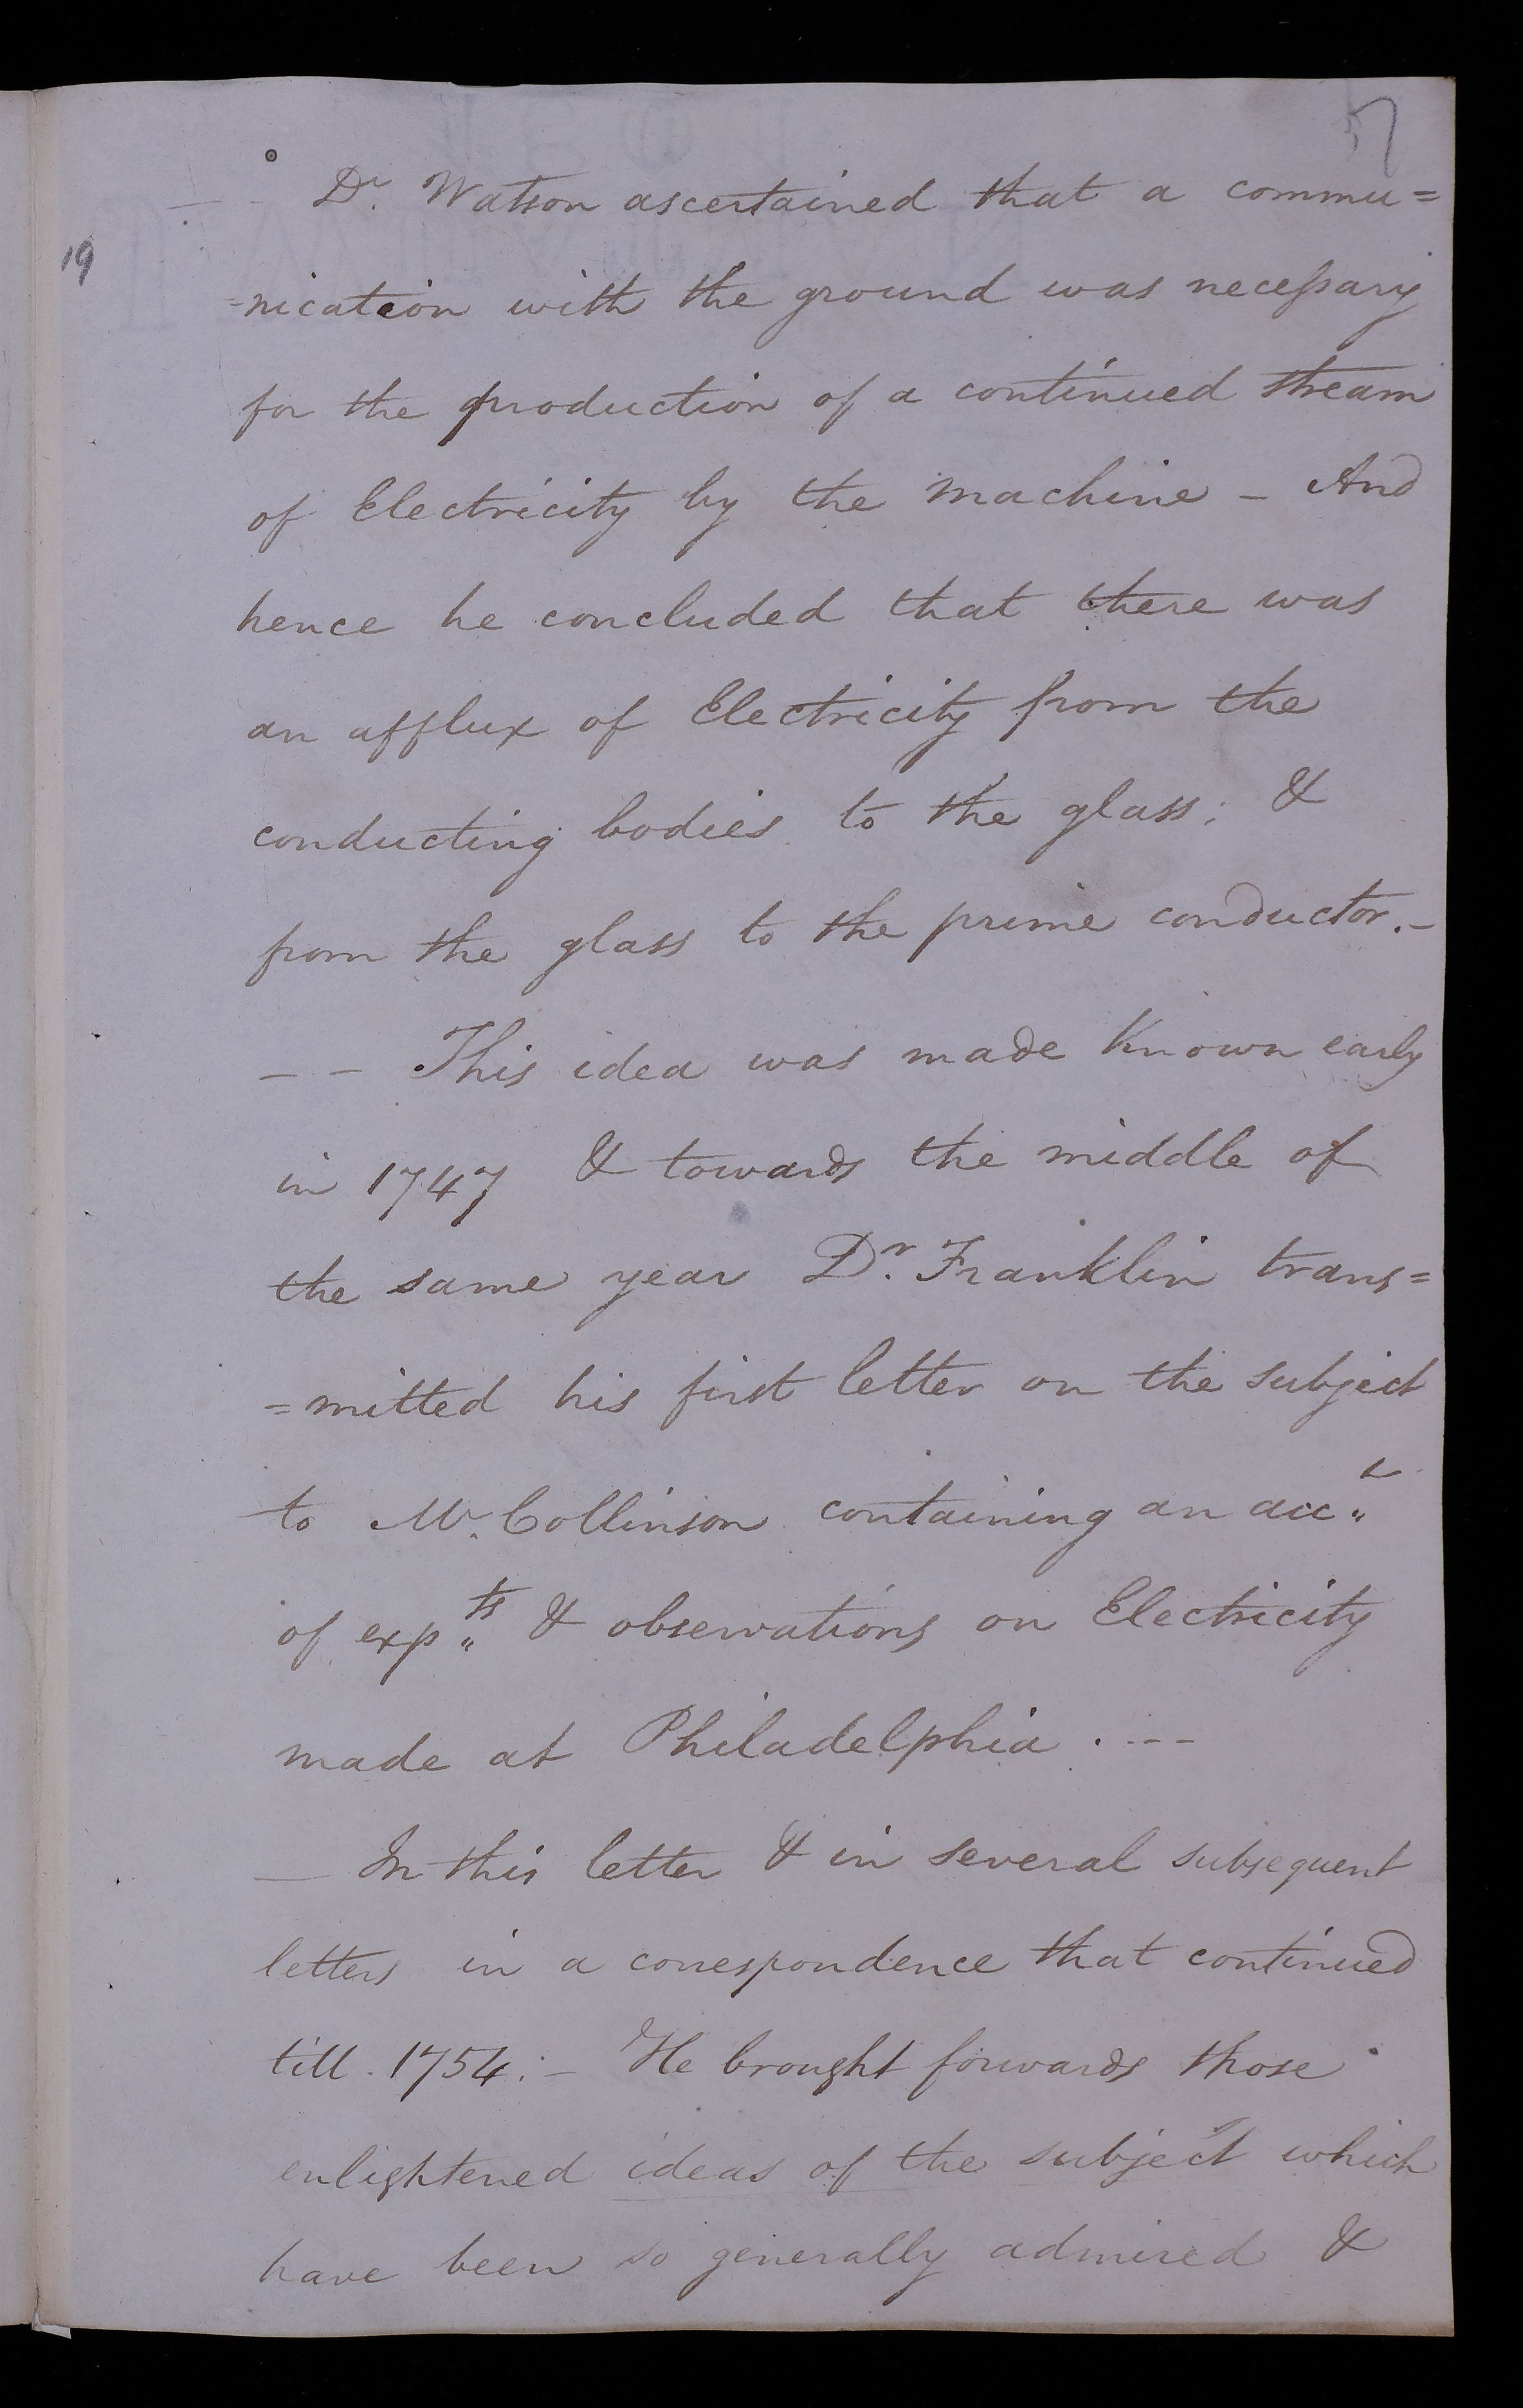 57
— - Dr. Watson ascertained that a commu=
19
=nication with the ground was necessary
for the production of a continued stream
of Electricity by the machine - And
hence he concluded that there was
an afflux of Electricity from the
conducting bodies to the glass; &
from the glass to the prime conductor.-
- - This idea was made known early
in 1747 & towards the middle of
the same year Dr. Franklin trans=
=mitted his first letter on the subject
to Mr. Collinson containing an acct.
of expts. & observations on Electricity
made at Philadelphia . ---
— In this letter & in several subsequent
letters in a correspondence that continued
till 1754; - He brought forwards those
enlightened ideas of the subject which
have been so generally admired &